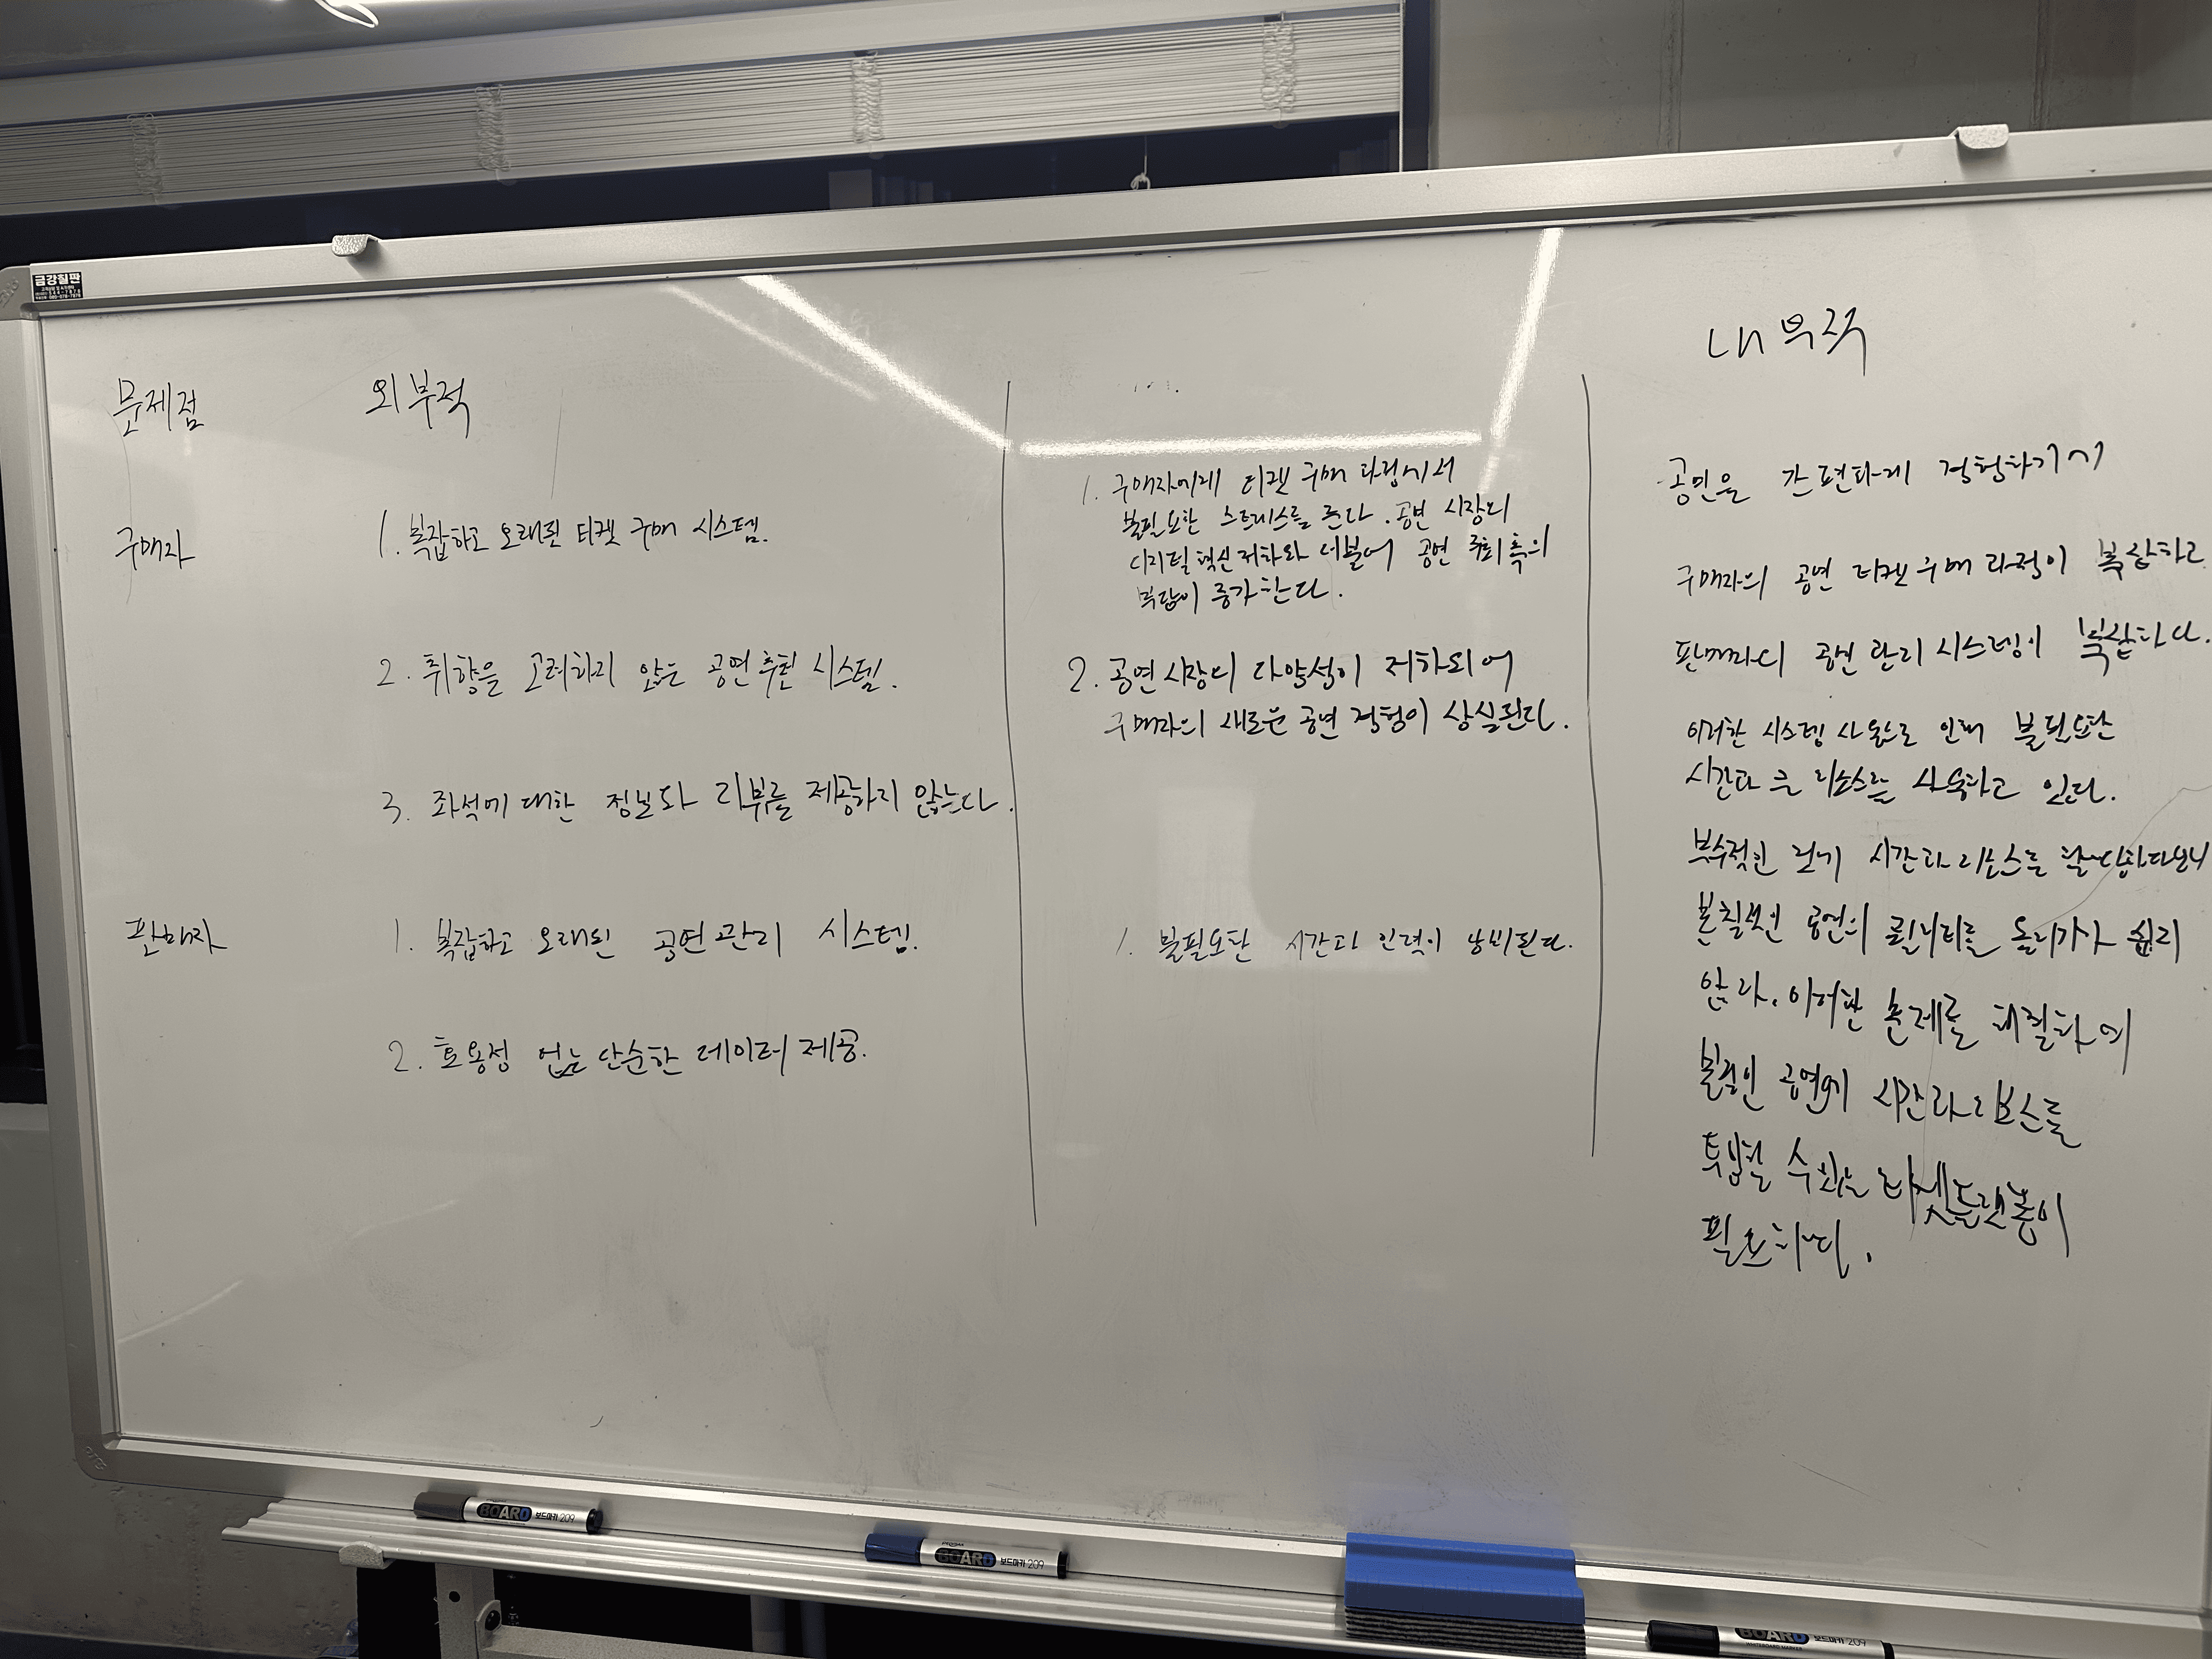 금강칠판
내부적
문제점
외부적
구매자
1. 복잡하고 오래된 티켓 구매 시스템.
2. 취향을 고려하지 않는 공연 추천 시스템.
3. 좌석에 대한 정보와 리뷰를 제공하지 않는다.
판매자
1. 복잡하고 오래된 공연 관리 시스템.
2. 효용성 없는 단순한 데이터 제공.
1. 구매자에게 티켓 구매 과정에서
불필요한 스트레스를 준다. 공연 시장의
디지털 혁신 저하와 더불어 공연 주최 측의
부담이 증가한다.
2. 공연 시장의 다양성이 저하되어
구매자의 새로운 공연 경험이 상실된다.
1. 불필요한 시간과 인력이 낭비된다.
공연을 간편하게 경험하기에
구매자의 공연 티켓 구매 과정이 복잡하고
판매자의 공연 관리 시스템이 복잡하다.
이러한 시스템 사용으로 인해 불필요한
시간과 큰 리소스를 사용하고 있다.
부수적인 것에 시간과 리소스를
본질적인 공연의 퀄리티를 올리기가 쉽지
않다. 이러한 문제를 해결하여
본질인 공연에 시간과 리소스를
투입할 수 있는 티켓 플랫폼이
필요하다.
BOARD 보드마카 209
BOARD 보드마카 209
BOARD 보드마카 209